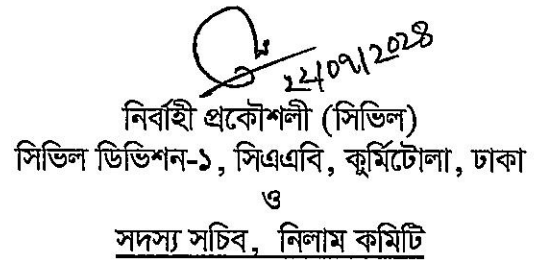 ২২/০৭/২০২৪
নির্বাহী প্রকৌশলী (সিভিল)
সিভিল ডিভিশন-১, সিএএবি, কুর্মিটোলা, ঢাকা
ও
সদস্য সচিব, নিলাম কমিটি